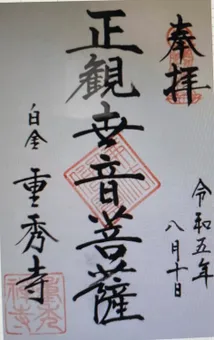 奉拝
令和五年
八月十日
正観世音菩薩
白金
重秀寺